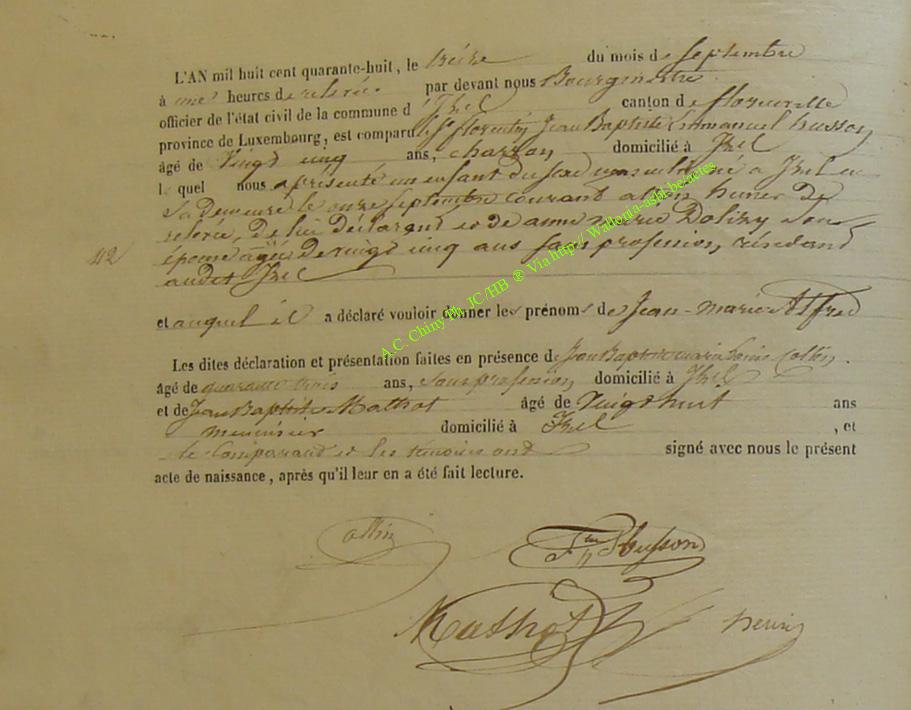 L'AN mil huit cent quarante-huit, le treize du mois de septembre
à une heures de relevée par devant nous Bourgmestre
officier de l'état civil de la commune d'Izel canton de florenville
province de Luxembourg, est comparu le Sr florentin Jean Baptiste Emmanuel husson
âgé de vingt cinq ans, charron domicilié à Izel
lequel nous a présenté un enfant du sexe masculin né a Izel en
sa demeure le onze septembre courant a heures de
relevée, de lui déclarant et de anne marie Dolizy son
épouse agée de vingt cinq ans sans profession, résidant
42
audit Izel
et auquel il a déclaré vouloir donner les prénoms de Jean-marie Alfred
Les dites déclaration et présentation faites en présence de Jean Baptiste Collin
âgé de quarante trois ans, sans profession, domicilié à Izel
et de Jean Baptiste Mathot âgé de vingt huit ans
menuisier domicilié à Izel , et
le comparant et les témoins ont signé avec nous le présent
acte de naissance, après qu'il leur en a été fait lecture.
Collin
husson
Mathot
A.C. Chiny Ph. JC/HB ® Via http:// Wallonia-asbl.be:actes